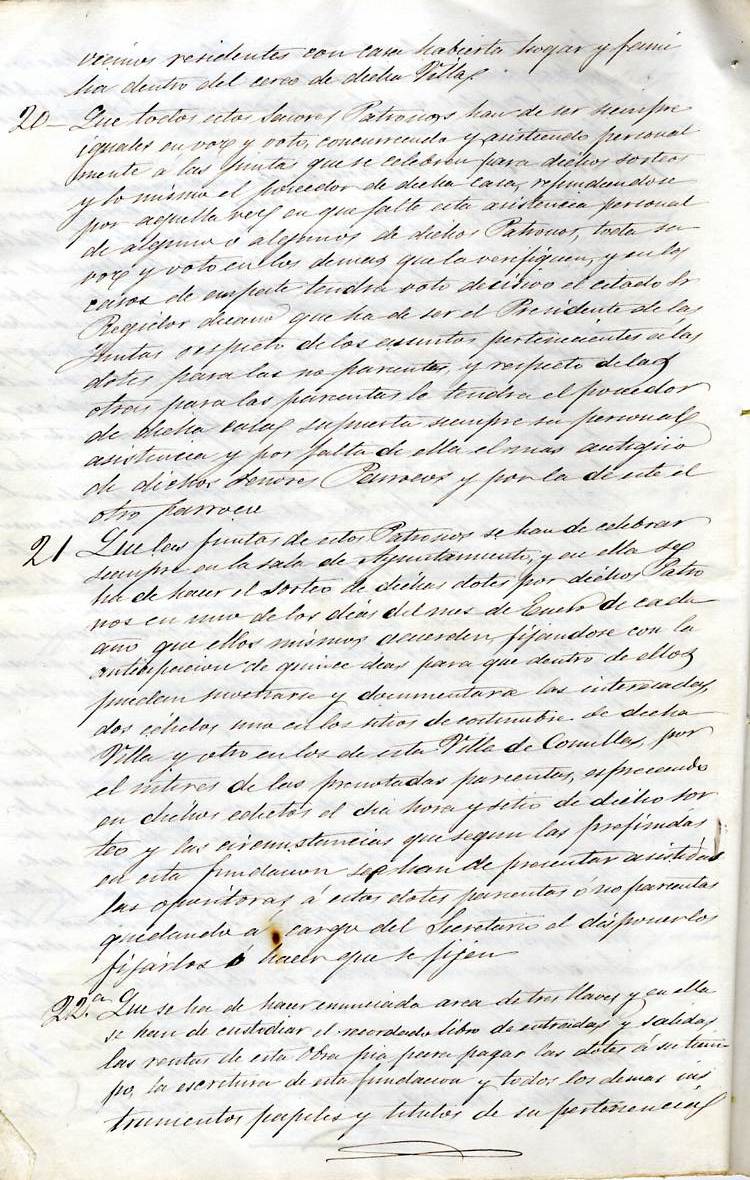 vecinos residentes con casa habierta hogar y fami
lia dentro del cerco de dicha Villa.
20- Que todos estos Señores Patronos han de ser siempre
iguales en voz y voto, concurriendo y asistiendo personal
mente á las Juntas que se celebren para dichos sorteos
y lo mismo el poseedor de dicha casa, refundiendose
por aquella vez en que falte esta asistencia personal
de alguno o algunos de dichos Patronos, toda su
voz y voto en los demas que la verifiquen, y en los
casos de empate tendra voto decisivo el citado Sr
Regidor decano que ha de ser el Presidente de las
Juntas respeto de los asuntos pertenecientes a las
dotes para las no parientas, y respeto de las
otras para las parientas le tendra el poseedor
de dicha casa, supuesta siempre su personal
asistencia y por falta de ella el mas antiguo
de dichos Señores Parrocos y por la de este el
otro parroco
21 Que las juntas de estos Patronos se han de celebrar
siempre en la sala de Ayuntamiento, y en ella se
ha de hacer el sorteo de dichas dotes por dichos Patro
nos en uno de los dias del mes de Enero de cada
año que ellos mismos acuerden, fijandose con la
anticipacion de quince dias para que dentro de ellos
puedan mostrarse y documentarse las interesadas,
dos edictos uno en los sitios de costumbre de dicha
Villa y otro en los de esta Villa de Comillas, por
el interes de las prenotadas parientas, espresando
en dichos edictos el dia hora y sitio de dicho sor
teo y las circunstancias que segun las prefinidas
en esta fundacion se han de presentar asistidas
las opositoras á estas dotes parientas o no parientas
quedando a cargo del Secretario el disponerlos
fijarlos ó hacer que se fijen
22.a Que se ha de hacer enunciada arca de tres llaves y en ella
se han de custodiar el recordado libro de entradas y salidas,
las rentas de esta Obra pia para pagar las dotes á su tiem-
po, la escritura de esta fundacion y todos los demas ins
trumentos papeles y titulos de su pertenencia